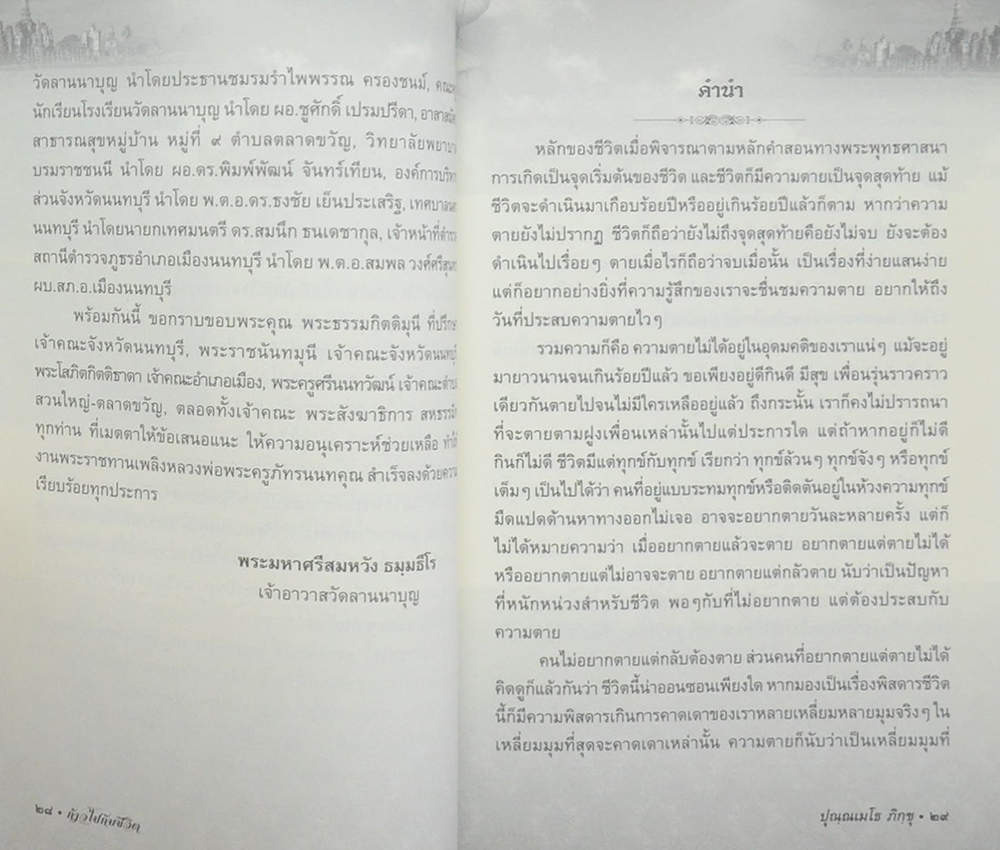 วัดลานนาบุญ นำโดยประธานชมรมรำไพพรรณ ครองชนม์,
นักเรียนโรงเรียนวัดลานนาบุญ นำโดย ผอ.ชูศักดิ์ เปรมปรีดา,
สาธารณสุขหมู่บ้าน หมู่ที่ ๙ ตำบลตลาดขวัญ,
บรมราชชนนี นำโดย ผอ.ดร.พิมพ์พัฒน์ จันทร์เทียน,
ส่วนจังหวัดนนทบุรี นำโดย พ.ต.อ.ดร.ธงชัย เย็นประเสริฐ,
นนทบุรี นำโดยนายกเทศมนตรี ดร.สมนึก ธนเดชากุล,
สถานีตำรวจภูธรอำเภอเมืองนนทบุรี นำโดย พ.ต.อ.สมพล
ผบ.สภ.อ.เมืองนนทบุรี
พร้อมกันนี้ ขอกราบขอบพระคุณ พระธรรมกิตติมุนี
เจ้าคณะจังหวัดนนทบุรี, พระราชนันทมุนี เจ้าคณะจังหวัดนนทบุรี
พระโสภิตกิตติธาดา เจ้าคณะอำเภอเมือง, พระครูศรีนนทวัฒน์
สวนใหญ่-ตลาดขวัญ, ตลอดทั้งเจ้าคณะ พระสังฆาธิการ
ทุกท่าน ที่เมตตาให้ข้อเสนอแนะ ให้ความอนุเคราะห์ช่วยเหลือ
งานพระราชทานเพลิงหลวงพ่อพระครูภัทรนนทคุณ สำเร็จลงด้วยความ
เรียบร้อยทุกประการ
พระมหาศรีสมหวัง ธมฺมธีโร
เจ้าอาวาสวัดลานนาบุญ
๒๘ • ก้าวไปกับชีวิต
คำนำ
หลักของชีวิตเมื่อพิจารณาตามหลักคำสอนทางพระพุทธศาสนา
การเกิดเป็นจุดเริ่มต้นของชีวิต และชีวิตก็มีความตายเป็นจุดสุดท้าย แม้
ชีวิตจะดำเนินมาเกือบร้อยปีหรืออยู่เกินร้อยปีแล้วก็ตาม หากว่าความ
ตายยังไม่ปรากฏ ชีวิตก็ถือว่ายังไม่ถึงจุดสุดท้ายคือยังไม่จบ ยังจะต้อง
ดำเนินไปเรื่อยๆ ตายเมื่อไรก็ถือว่าจบเมื่อนั้น เป็นเรื่องที่ง่ายแสนง่าย
แต่ก็อยากอย่างยิ่งที่ความรู้สึกของเราจะชื่นชมความตาย อยากให้ถึง
วันที่ประสบความตายไวๆ
รวมความก็คือ ความตายไม่ได้อยู่ในอุดมคติของเราแน่ๆ แม้จะอยู่
มายาวนานจนเกินร้อยปีแล้ว ขอเพียงอยู่ดีกินดี มีสุข เพื่อนรุ่นราวคราว
เดียวกันตายไปจนไม่มีใครเหลืออยู่แล้ว ถึงกระนั้น เราก็คงไม่ปรารถนา
ที่จะตายตามฝูงเพื่อนเหล่านั้นไปแต่ประการใด แต่ถ้าหากอยู่ก็ไม่ดี
กินก็ไม่ดี ชีวิตมีแต่ทุกข์กับทุกข์ เรียกว่า ทุกข์ล้วนๆ ทุกข์จังๆ หรือทุกข์
เต็มๆ เป็นไปได้ว่า คนที่อยู่แบบระทมทุกข์หรือติดตันอยู่ในห้วงความทุกข์
มืดแปดด้านหาทางออกไม่เจอ อาจจะอยากตายวันละหลายครั้ง แต่ก็
ไม่ได้หมายความว่า เมื่ออยากตายแล้วจะตาย อยากตายแต่ตายไม่ได้
หรืออยากตายแต่ไม่อาจจะตาย อยากตายแต่กลัวตาย นับว่าเป็นปัญหา
ที่หนักหน่วงสำหรับชีวิต พอๆกับที่ไม่อยากตาย แต่ต้องประสบกับ
ความตาย
คนไม่อยากตายแต่กลับต้องตาย ส่วนคนที่อยากตายแต่ตายไม่ได้
คิดดูก็แล้วกันว่า ชีวิตนี้น่าออนซอนเพียงใด หากมองเป็นเรื่องพิสดารชีวิต
นี้ก็มีความพิสดารเกินการคาดเดาของเราหลายเหลี่ยมหลายมุมจริงๆ ใน
เหลี่ยมมุมที่สุดจะคาดเดาเหล่านั้น ความตายก็นับว่าเป็นเหลี่ยมมุมที่
ปุณฺณเมโธ ภิกขุ • ๒๙